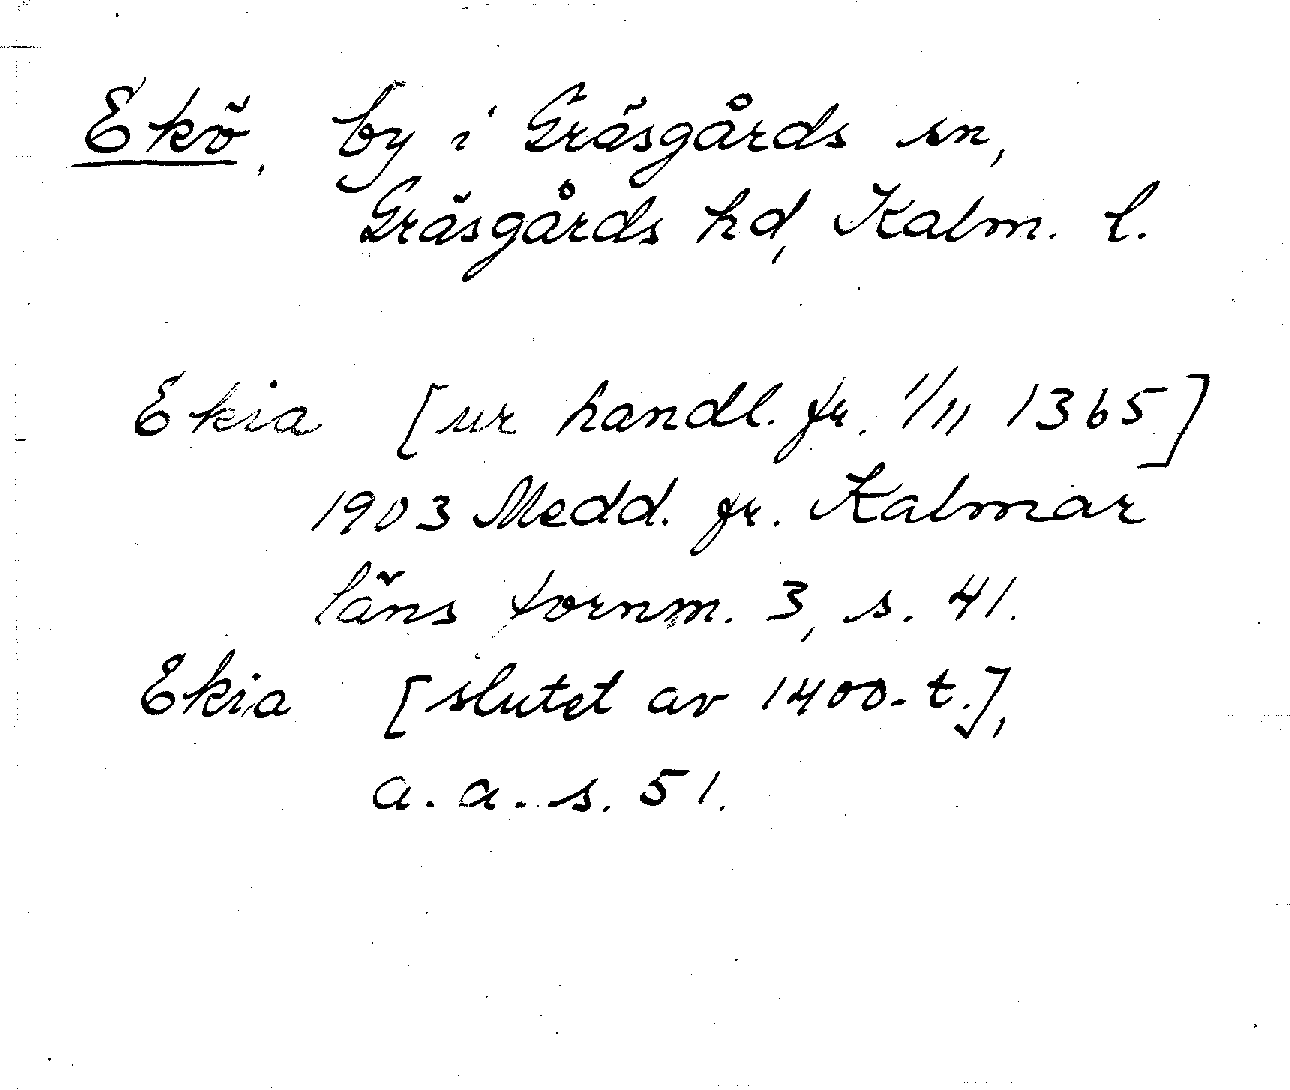 Ekö, by i Gräsgårds sn,
Gräsgårds hd, Kalm. l.
Ekia [ur handl. fr. 1/11 1365]
1903 Medd. fr. Kalmar
läns fornm. 3, s. 41.
Ekia [slutet av 1400-t.],
a. a. s. 51.